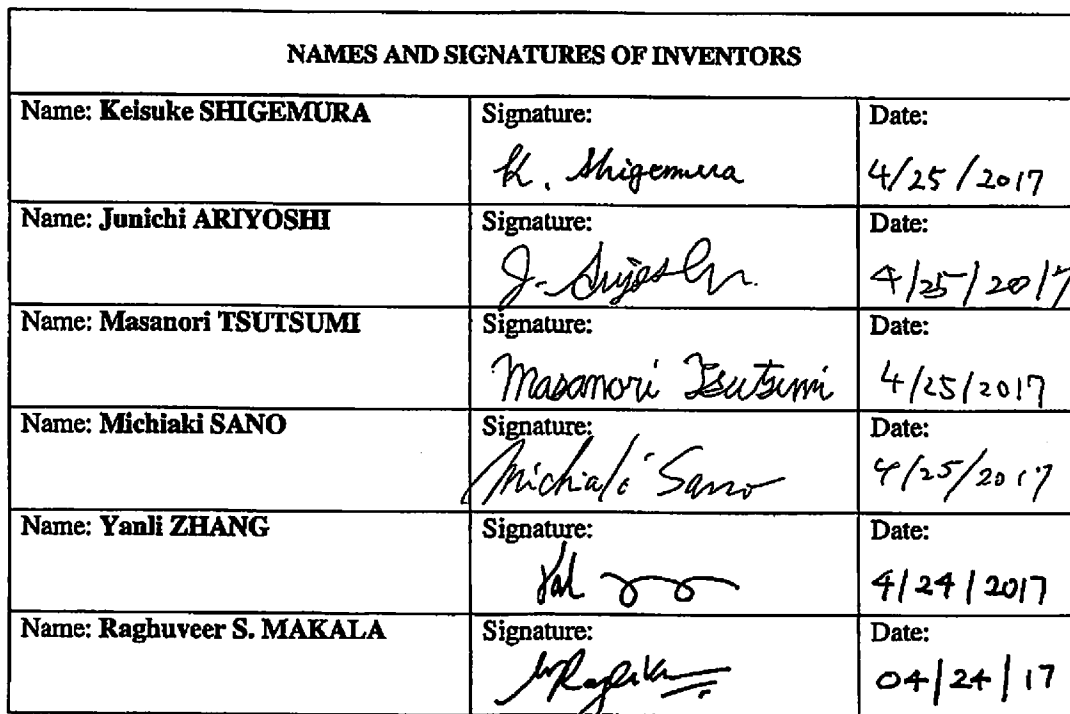 NAMES AND SIGNATURES OF INVENTORS
Name: Keisuke SHIGEMURA Signature: Date:
K. Shigemura 4/25/2017
Name: Junichi ARIYOSHI Signature: Date:
J. 4/25/2017
Name: Masanori TSUTSUMI Signature: Date:
Masanori Tsutsumi 4/25/2017
Name: Michiaki SANO Signature: Date:
Michiaki Sano 4/25/2017
Name: Yanli ZHANG Signature: Date:
4/24/2017
Name: Raghuveer S. MAKALA Signature: Date:
04/24/17